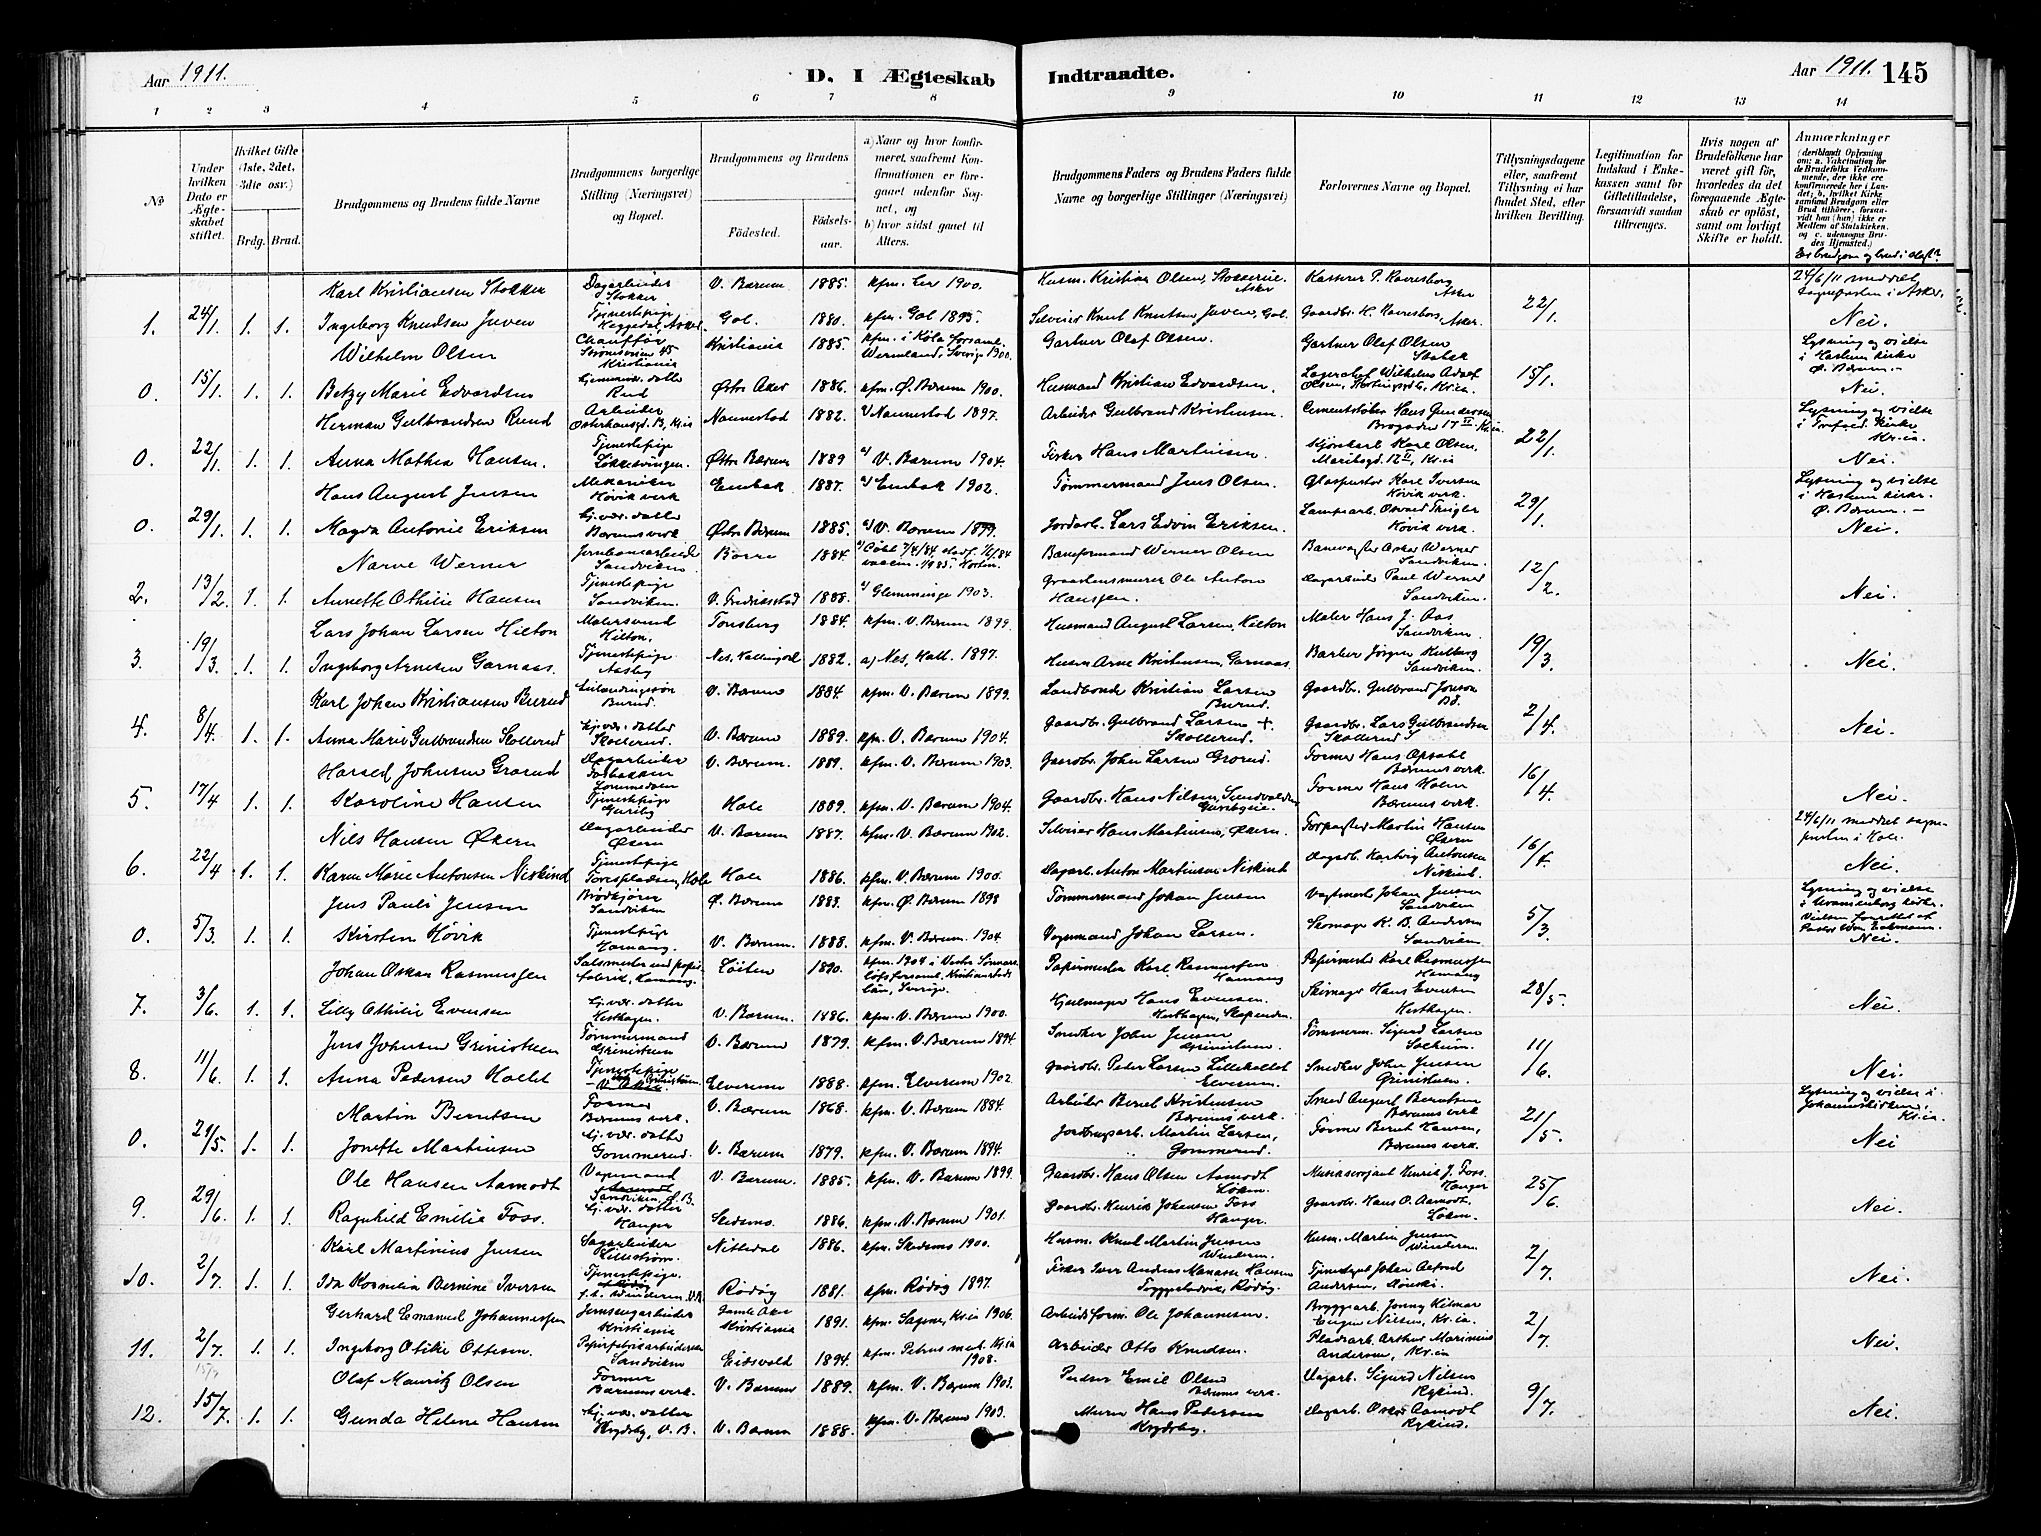 Aar 1911.
D. I Ægteskab Indtraadte.
Aar 1911. 145
1 2 3 4 5 6 7 8 9 10 11 12 13 14
No
Under hvilken Dato er Ægteskabet stiftet.
Hvilket Gifte (1ste, 2det, 3die osv.)
Brdg. Brud.
Brudgommens og Brudens fulde Navne
Brudgommens borgerlige Stilling (Næringsvei) og Bopæl.
Brudgommens og Brudens
Fødested. Fødselsaar.
a) Naar og hvor konfirmeret, saafremt Konfirmationen er foregaaet udenfor Sognet, og
b) hvor sidst gaaet til Alters.
Brudgommens Faders og Brudens Faders fulde Navne og borgerlige Stillinger (Næringsvei)
Forlovernes Navne og Bopæl.
Tillysningsdagene eller, saafremt Tillysning ei har fundet Sted, efter hvilken Bevilling.
Legitimation for Indskud i Enkekassen samt for Giftetilladelse, forsaavidt saadan tiltrænges.
Hvis nogen af Brudefolkene har været gift før, hvorledes da det foregaaende Ægteskab er opløst, samt om lovligt Skifte er holdt.
Anmærkninger
(deriblandt Oplysning om: a. Vakcination for de Brudefolks Vedkommende, der ikke ere konfirmerede her i Landet; b. hvilket Kirkesamfund Brudgom eller Brud tilhører, forsaavidt han (hun) ikke er Medlem af Statskirken og c. udensogns Brudes Hjemsted.)
Er brudgom og brud i slægt?
Karl Kristiansen Stokker Dagarbeider Stokker V. Bærum 1885. kfm. 1900. Husm. Kristian Olsen, Asker Kasserer P. Ravnsborg Asker 24/6/11 meddelt sogneprsten i Asker.
1. 24/1. 1. 1. Ingeborg Knudsen Juven Tjenestepige Heggedal, Asker. Gol. 1880. kfm. Gol 1895. Selveier Knut Knutsen Juven, Gol. Gaardbr. H. Ravnsborg, Asker. 22/1. Nei.
Wilhelm Olsen Chauffør Strømsveien 45 Kristiania Kristiania 1885. kfm. i Køla forsaml. Wermland, Sverige 1900. Gartner Olaf Olsen. Gartner Olaf Olsen Stabæk Lysning og vielse i Haslum kirke Ø. Bærum.
0. 15/1. 1. 1. Betzy Marie Edvardsen hjemmevær. datter Rud Østre Aker 1886. kfm. Ø. Bærum 1900. Husmand Kristian Edvardsen. Lagerchef Wilhelm Adolf Olsen, Kr.ia 15/1. Nei.
Herman Gulbrandsen Rund Arbeider Osterhausgd. 13, Kr.ia Nannestad 1882. Nannestad 1897. Arbeider Gulbrand Kristiansen. Cementstøber Hans Gundersen Brogaden 17 II Kr.ia Lysning og vielse i Trefold. kirke Kr.ia.
0. 22/1. 1. 1. Anna Mathea Hansen. Tjenestepige Løkkesvingen. Østre Bærum 1889 a) V. Bærum 1904. Fisker Hans Martinsen. Karl Olsen, Maribogd. 12 II, Kr.ia 22/1. Nei.
Hans August Jensen Mekaniker Høvik verk Enebak 1887. a) Enebak 1902. Tømmermand Jens Olsen. Glaspuster Karl Iversen Høvik verk. Lysning og vielse i Haslum kirke. Ø. Bærum.
0. 29/1. 1. 1. Magda Antonie Eriksen hj.vær. datter Bærums verk Østre Bærum 1885. a) V. Bærum 1899. Jordarb. Lars Edvin Eriksen. Lampearb. Osvald Høvik verk. 29/1. Nei.
Narve Werner Jernbanearbeider Sandviken Borre 1884. Døbt 7/4/84. Horten. Baneformand Werner Olsen Banevogter Oskar Werner Sandviken.
2. 13/2. 1. 1. Annette Othilie Hansen Tjenestepige Sandviken. V. Fredrikstad 1888. a) Glemminge 1903. Graastensmurer Ole Anton Hanssen. Dagarbeider Paul Werner Sandviken. 12/2. Nei.
Lars Johan Larsen Hilton Malersvend Hilton. Tønsberg 1884. kfm. V. Bærum 1899. Husmand August Larsen, Hilton Maler Hans J. Aas Sandviken.
3. 19/3. 1. 1. Ingeborg Arnesen Garnaas. Tjenestepige Aasly Nes, Hallingdal 1882. a) Nes, Hall. 1897. Husm. Arne Kristensen, Garnaas. Barber Jørgen Sandviken. 19/3. Nei.
Karl Johan Kristiansen Burud Burud. V. Bærum 1884. kfm. V. Bærum 1899. Landbonde Kristian Larsen Burud. Gaardbr. Gulbrand Jonsen Bø.
4. 8/4. 1. 1. Anna Marie Gulbrandsen Skollerud hj.vær. datter Skollerud. V. Bærum 1889. kfm. V. Bærum 1904. Gaardbr. Gulbrand Larsen + Skollerud. Gaardbr. Lars Gulbrandsen Skollerud 2/4. Nei.
Harald Johnsen Grorud Dagarbeider Fosbakken Lommedalen V. Bærum. 1881. kfm. V. Bærum 1903. Gaardbr. John Larsen Grorud. Former Hans Opsahl Bærums verk.
5. 17/4 1. 1. Karoline Hansen Tjenestepige Guriby Hole 1889. kfm. V. Bærum 1904. Gaardbr. Hans Nilsen, Sundvolden Former Hans Holm Bærums verk. 16/4. Nei.
Nils Hansen Økern Dagarbeider Økern V. Bærum 1887. kfm. V. Bærum 1902. Selveier Hans Martinsen, Økern. Forpagter Martin Hansen Økern 24/6/11 meddelt sogneprsten i Hole.
6. 22/4 1. 1. Karen Marie Antonsen Niskind Tjenestepige Hole Hole 1886. kfm. V. Bærum 1900. Dagarb. Anton Martinsen Niskind Dagarb. Hartvig Antonsen Niskind. 16/4. Nei.
Jens Pauli Jensen Brødkjører Sandviken Ø. Bærum 1883. kfm. Ø. Bærum 1898 Tømmermand Johan Jensen Vognmand Johan Jensen Sandviken Lysning og vielse i Uranienborg kirke.
0. 5/3. 1. 1. Kirsten Høvik Tjenestepige Hamang. V. Bærum. 1888. kfm. V. Bærum 1904. Vognmand Johan Larsen. Skomager K. B. Andersen Sandviken 5/3. Nei.
Johan Oskar Rasmussen Salsmester ved papirfabrik, Hamang. Løiten 1890. kfm. 1904 i Kristianstads län, Sverige. Papirmester Karl Rasmussen Hamang Papirmester Karl Rasmussen Hamang
7. 3/6. 1. 1. Lilly Othilie Evensen hj.vær. datter Hesthagen. V. Bærum. 1886. kfm. V. Bærum 1900. Hjulmager Hans Evensen. Hesthagen, Slependen. Skimager Hans Evensen Hesthagen. 28/5. Nei.
Jens Johnsen Grinistuen Tømmermand Grinistuen V. Bærum 1879. kfm. V. Bærum 1894. Snedker John Jensen Grinistuen. Tømmerm. Sigurd Larsen Solheim.
8. 11/6. 1. 1. Anna Pedersen Hollet Tjenestepige Elverum 1888. kfm. Elverum 1902. Gaardbr. Peter Larsen Lillehollet Elverum. Snedker John Jensen Grinistuen. 11/6. Nei.
Martin Berntsen Former Bærums verk. V. Bærum 1868. kfm. V. Bærum 1884. Arbeider Bernt Kristensen Bærums verk. Smed August Berntsen Bærums verk Lysning og vielse i Johanneskirken, Kr.ia.
0. 21/5. 1. 1. Josefte Martinsen hj.vær. datter Gommerud. V. Bærum 1879. kfm. V. Bærum 1894. Jordbrugsarb. Martin Larsen, Gommerud. Former Bernt Hansen, Bærums verk. 21/5. Nei
Ole Hansen Aamodt Vognmand Sandviken, Ø.B. V. Bærum. 1885. kfm. V. Bærum 1899. Gaardbr. Hans Olsen Aamodt Løken. Musiksersjant Henrik J. Foss Hanger
9. 29/6. 1. 1. Ragnhild Emilie Foss. hj.vær. datter Hanger Skedsmo. 1886. kfm. V. Bærum 1901. Gaardbr. Henrik Johansen Foss Hanger. Gaardbr. Hans O. Aamodt Løken. 25/6. Nei.
Karl Martinius Jensen Sagarbeider Lillestrøm. Nittedal 1886. kfm. Skedsmo 1900. Husm. Knut Martin Jensen Winderen. Husm. Martin Jensen Winderen.
10. 2/7. 1. 1. Ida Kornelia Bernine Iversen Tjenestepige. Rødøy 1881. kfm. Rødøy 1897. Fisker Iver Andreas Manasse Hansen Rødøy. Johan Alfred Andersen, 2/7. Nei.
Gerhard Emanuel Johannessen Jernsengarbeider Kristiania Gamle Aker Kristiania 1891. kfm. Sagene, Kr.ia 1906. Arbeidsform. Ole Johannesen. Bryggearb. Jonny Hilmar Eugen Nielsen, Kr.ia.
11. 2/7. 1. 1. Ingeborg Otilie Ottesen. Papirfabrikarbeiderske Sandviken Eidsvold 1894. kfm. Petrus men. Kr.ia 1908. Arbeider Otto Knudsen. Pladsarb. Arthur Marinius Andersen, Kr.ia 2/7. Nei.
Olaf Mauritz Olsen Former Bærums verk. V. Bærum 1889. kfm. V. Bærum 1903. Pudser Emil Olsen Bærums verk. Dagarb. Sigurd Nilsen Rykind.
12. 15/7. 1. 1. Gunda Helene Hansen hj.vær. datter Krydsby, V. B. V. Bærum 1888. kfm. V. Bærum 1903. Murer Hans Pedersen Krydsby. Dagarb. Oskar Aamodt Rykind. 9/7. Nei.